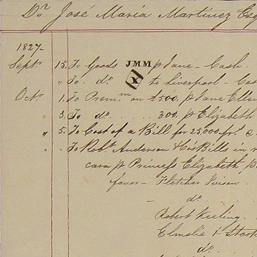 Dr José María Martínez Esq
1827
Sept 15 To Goods JMM p Jane - Cash
" To do to Liverpool - Cas
Oct 1 To Prem on £500 p Jane Ellen
" 3 To do 300 p Elizabeth
" 5 To Cost of a Bill for 25000 f
" To Robt Anderson His Bill in
p Princess Elizabeth
favor - Fletcher
do
Robert Keeling
Elmslie &
do